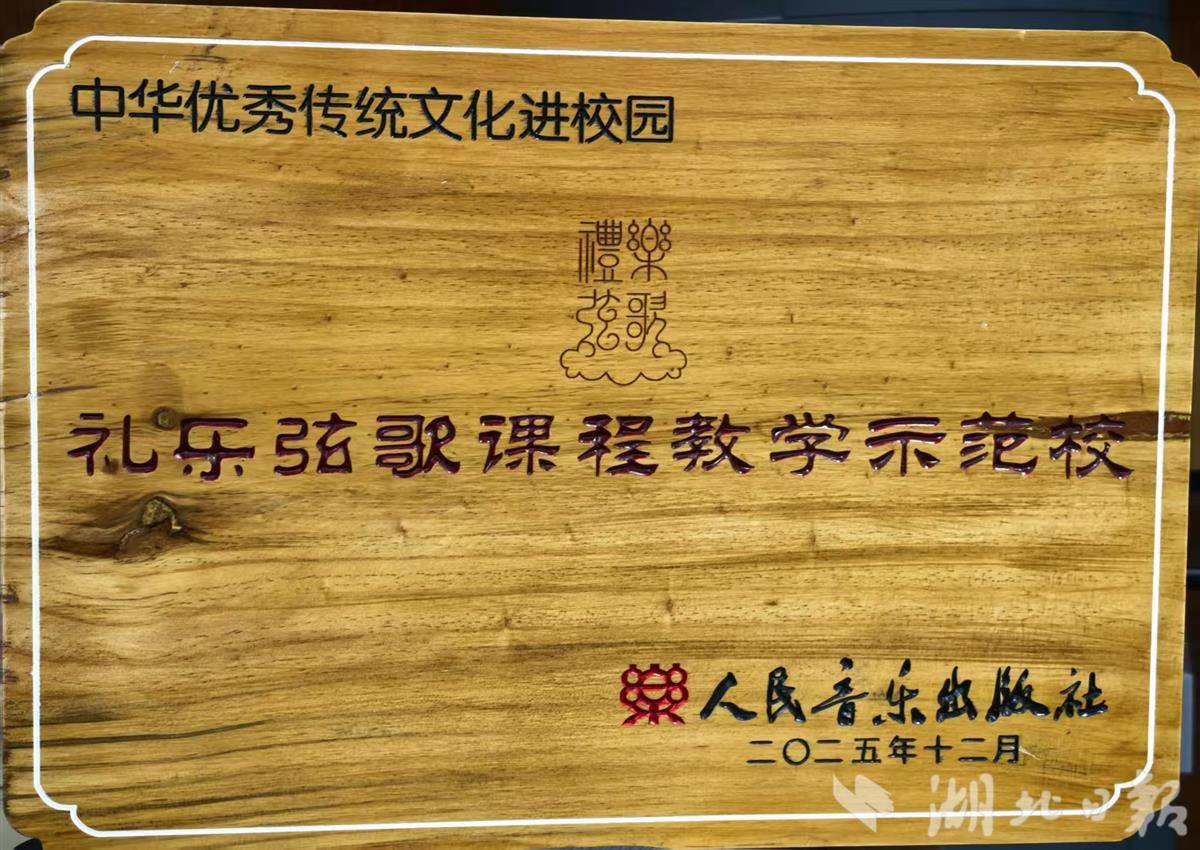 中华优秀传统文化进校园
禮樂
弦歌
礼乐弦歌课程教学示范校
人民音乐出版社
二〇二五年十二月
湖北日报